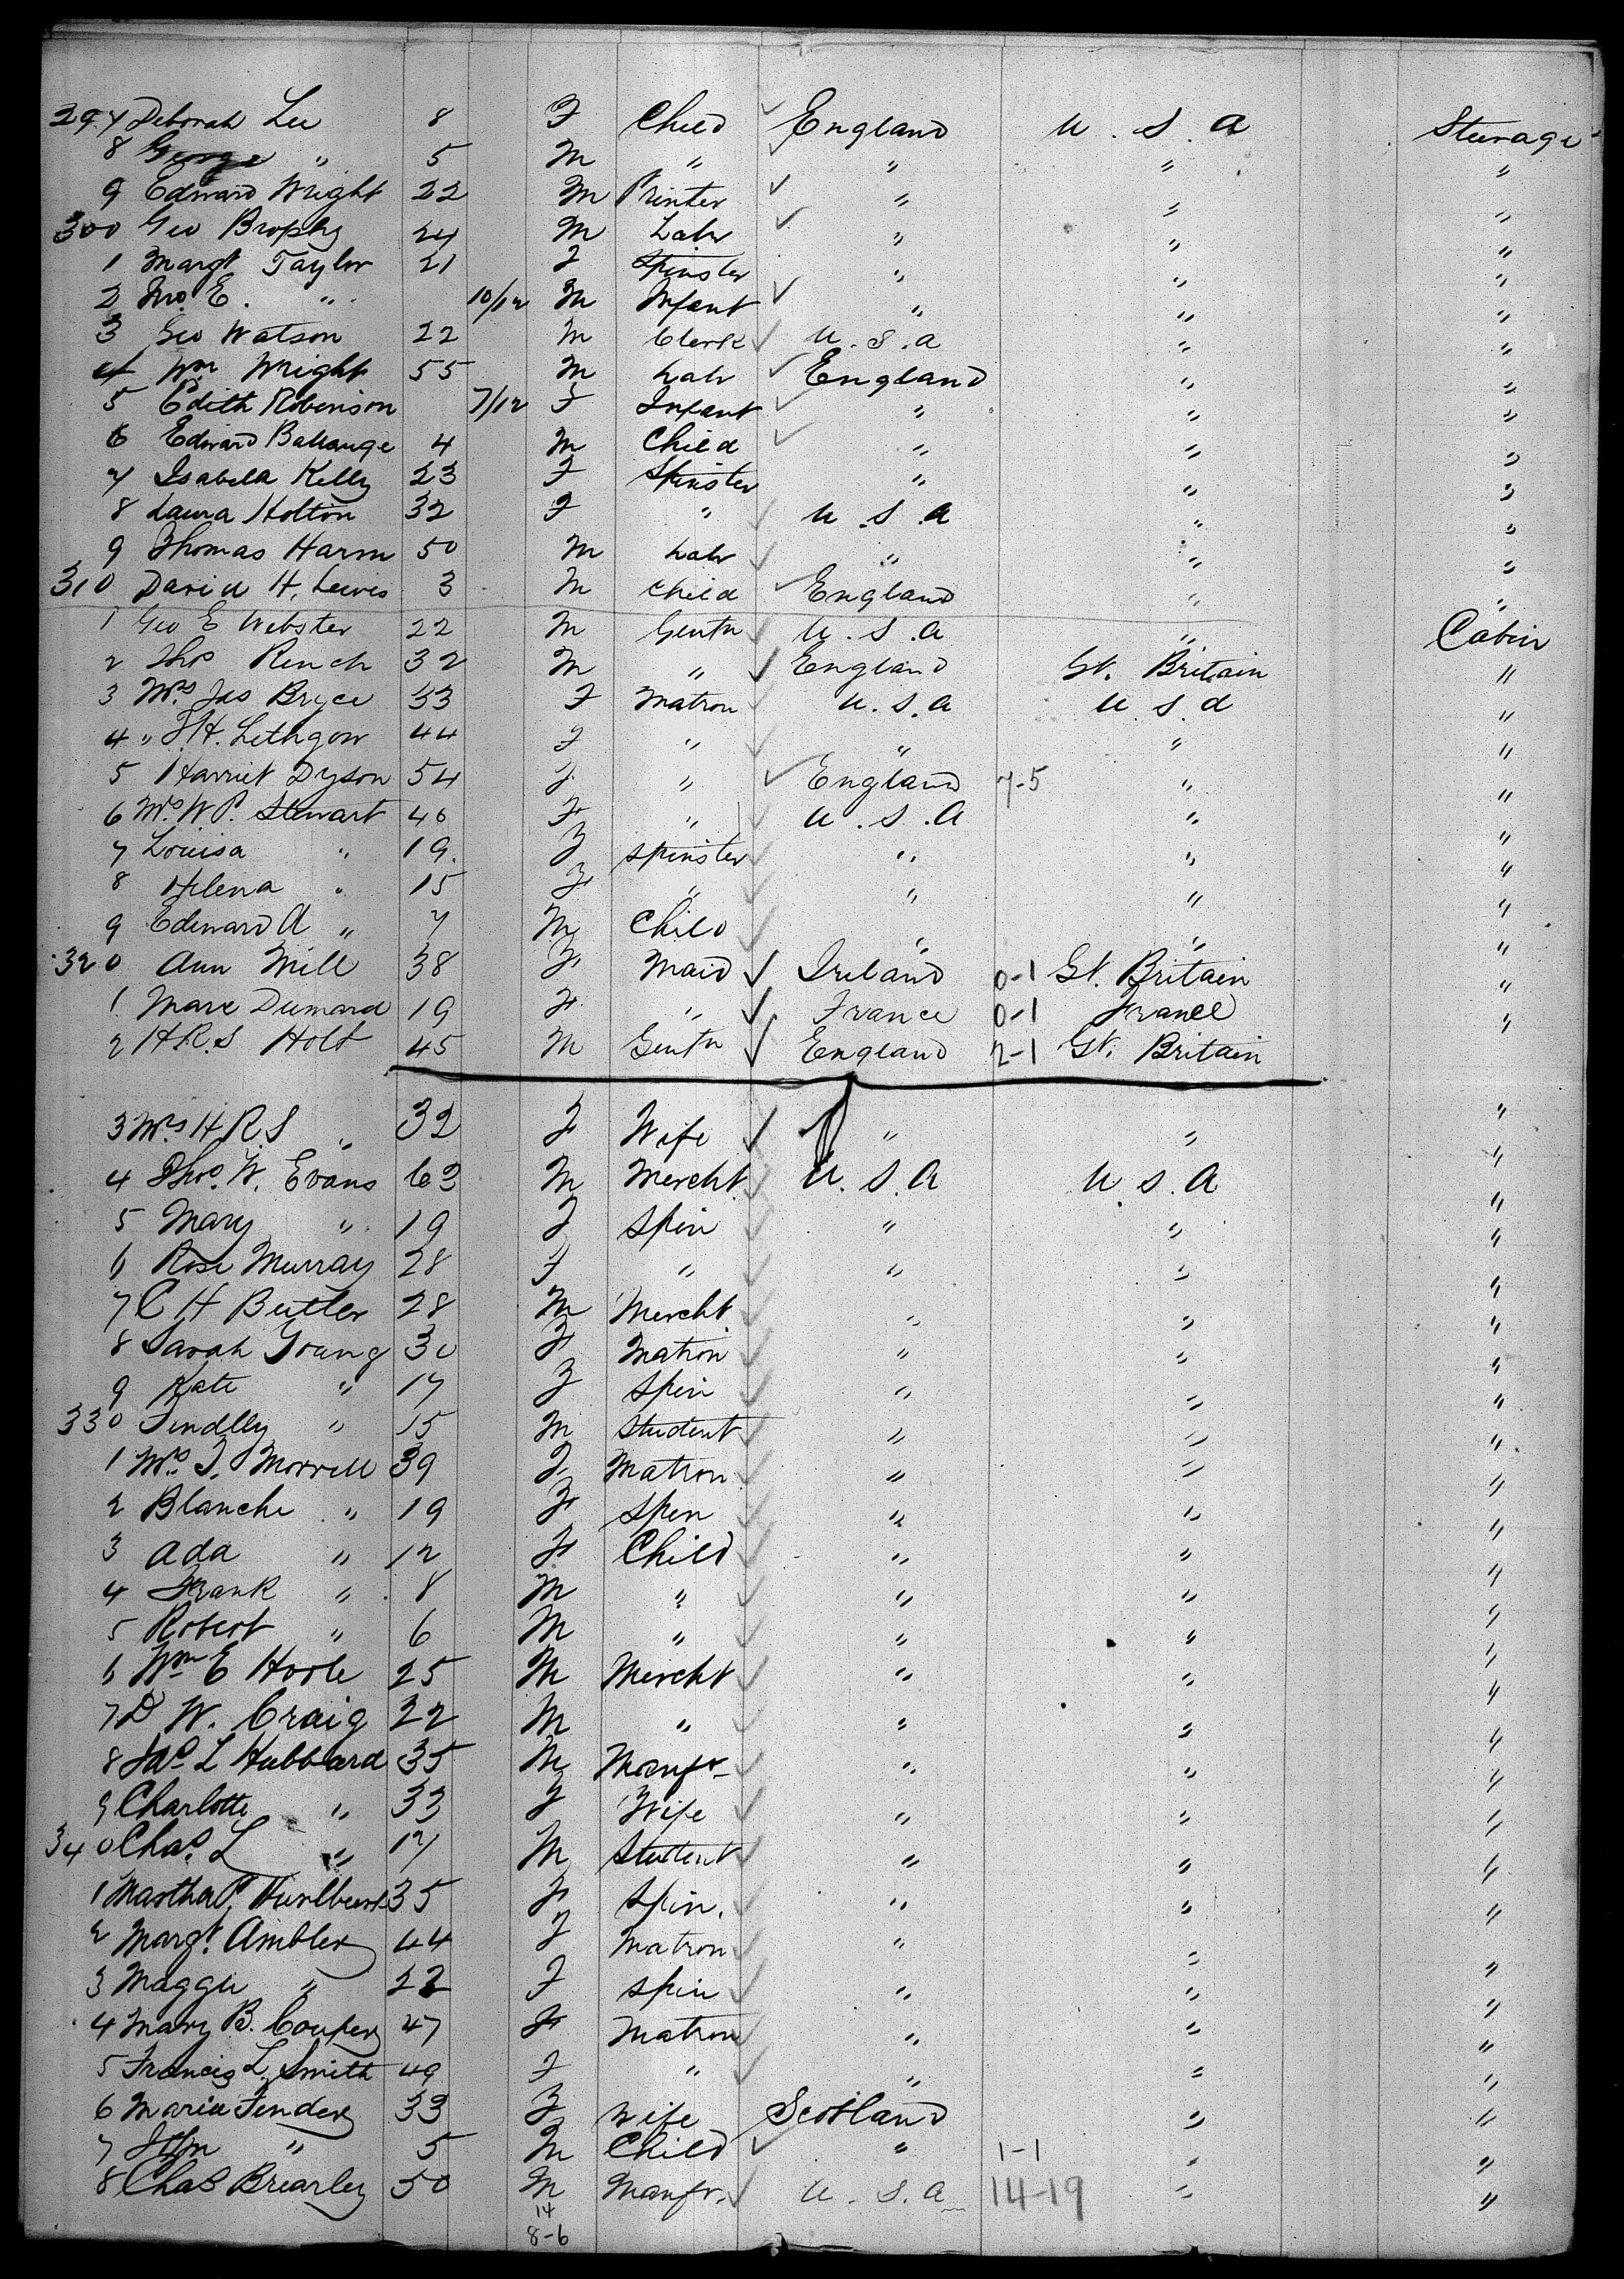 297 Deborah Lee 8 F Child England U.S.A Steerage
8 George " 5 M " " " "
9 Edward Wright 22 M Printer " " "
300 Geo Brophy 24 M Labr " " "
1 Margt Taylor 21 F Spinster " " "
2 Jno. E. " 10/12 M Infant " " "
3 Geo Watson 22 M Clerk U.S.A " "
4 Wm Wright 55 M Labr England " "
5 Edith Robinson 7/12 F Infant " " "
6 Edward 4 M Child " " "
7 Isabella Kelly 23 F Spinster " " "
8 Laura Holton 32 F " U.S.A " "
9 Thomas Harm 50 M Labr " " "
310 David H. Lewis 3 M Child England " "
1 Geo E Webster 22 M Gentn U.S.A " Cabin
2 Thos Rench 32 M " England Gt. Britain "
3 Mrs Jas Bryce 53 F Matron U.S.A U.S.A "
4 " J.H. Lethgow 44 F " " " "
5 Harriet Dyson 54 F " England 7-5 " "
6 Mrs. W.P. Stewart 40 F " U.S.A " "
7 Louisa " 19. F Spinster " " "
8 Helena " 15 F " " " "
9 Edward A " 7 M Child " " "
320 Ann Mill 38 F Maid Ireland 0-1 Gt. Britain "
1 Mare Dumard 19 F " France 0-1 France "
2 H.R.S Holt 45 M Gentn England 2-1 Gt. Britain
3 Mrs H R S " 32 F Wife " " "
4 Thos. W. Evans 63 M Mercht. U.S.A U.S.A "
5 Mary " 19 F Spin " " "
6 Rose Murray 28 F " " " "
7 C H Butler 28 M Mercht. " " "
8 Sarah Young 30 F Matron " " "
9 Kate " 17 F Spin " " "
330 Findlly " 15 M Student " " "
1 Mrs. T. Morrell 39 F Matron " " "
2 Blanche " 19 F Spin " " "
3 Ada " 12 F Child " " "
4 Frank " 8 M " " " "
5 Robert " 6 M " " " "
6 Wm E Hoole 25 M Mercht " " "
7 D W. Craig 22 M " " " "
8 Jas. L Hubbard 35 M Manfr " " "
9 Charlotte " 33 F Wife " " "
340 Chas. L " 17 M Student " " "
1 Martha P. Hurlburt 35 F Spin. " " "
2 Margt. Ambler 44 F Matron " " "
3 Maggie " 22 F Spin " " "
4 Mary B. Couper 47 F Matron " " "
5 Francis L. Smith 49 F " " " "
6 Maria Fender 33 F Wife Scotland " "
7 John " 5 M Child " 1-1 " "
8 Chas Brearley 50 M Manfr. U.S.A 14-19 " "
14
8-6